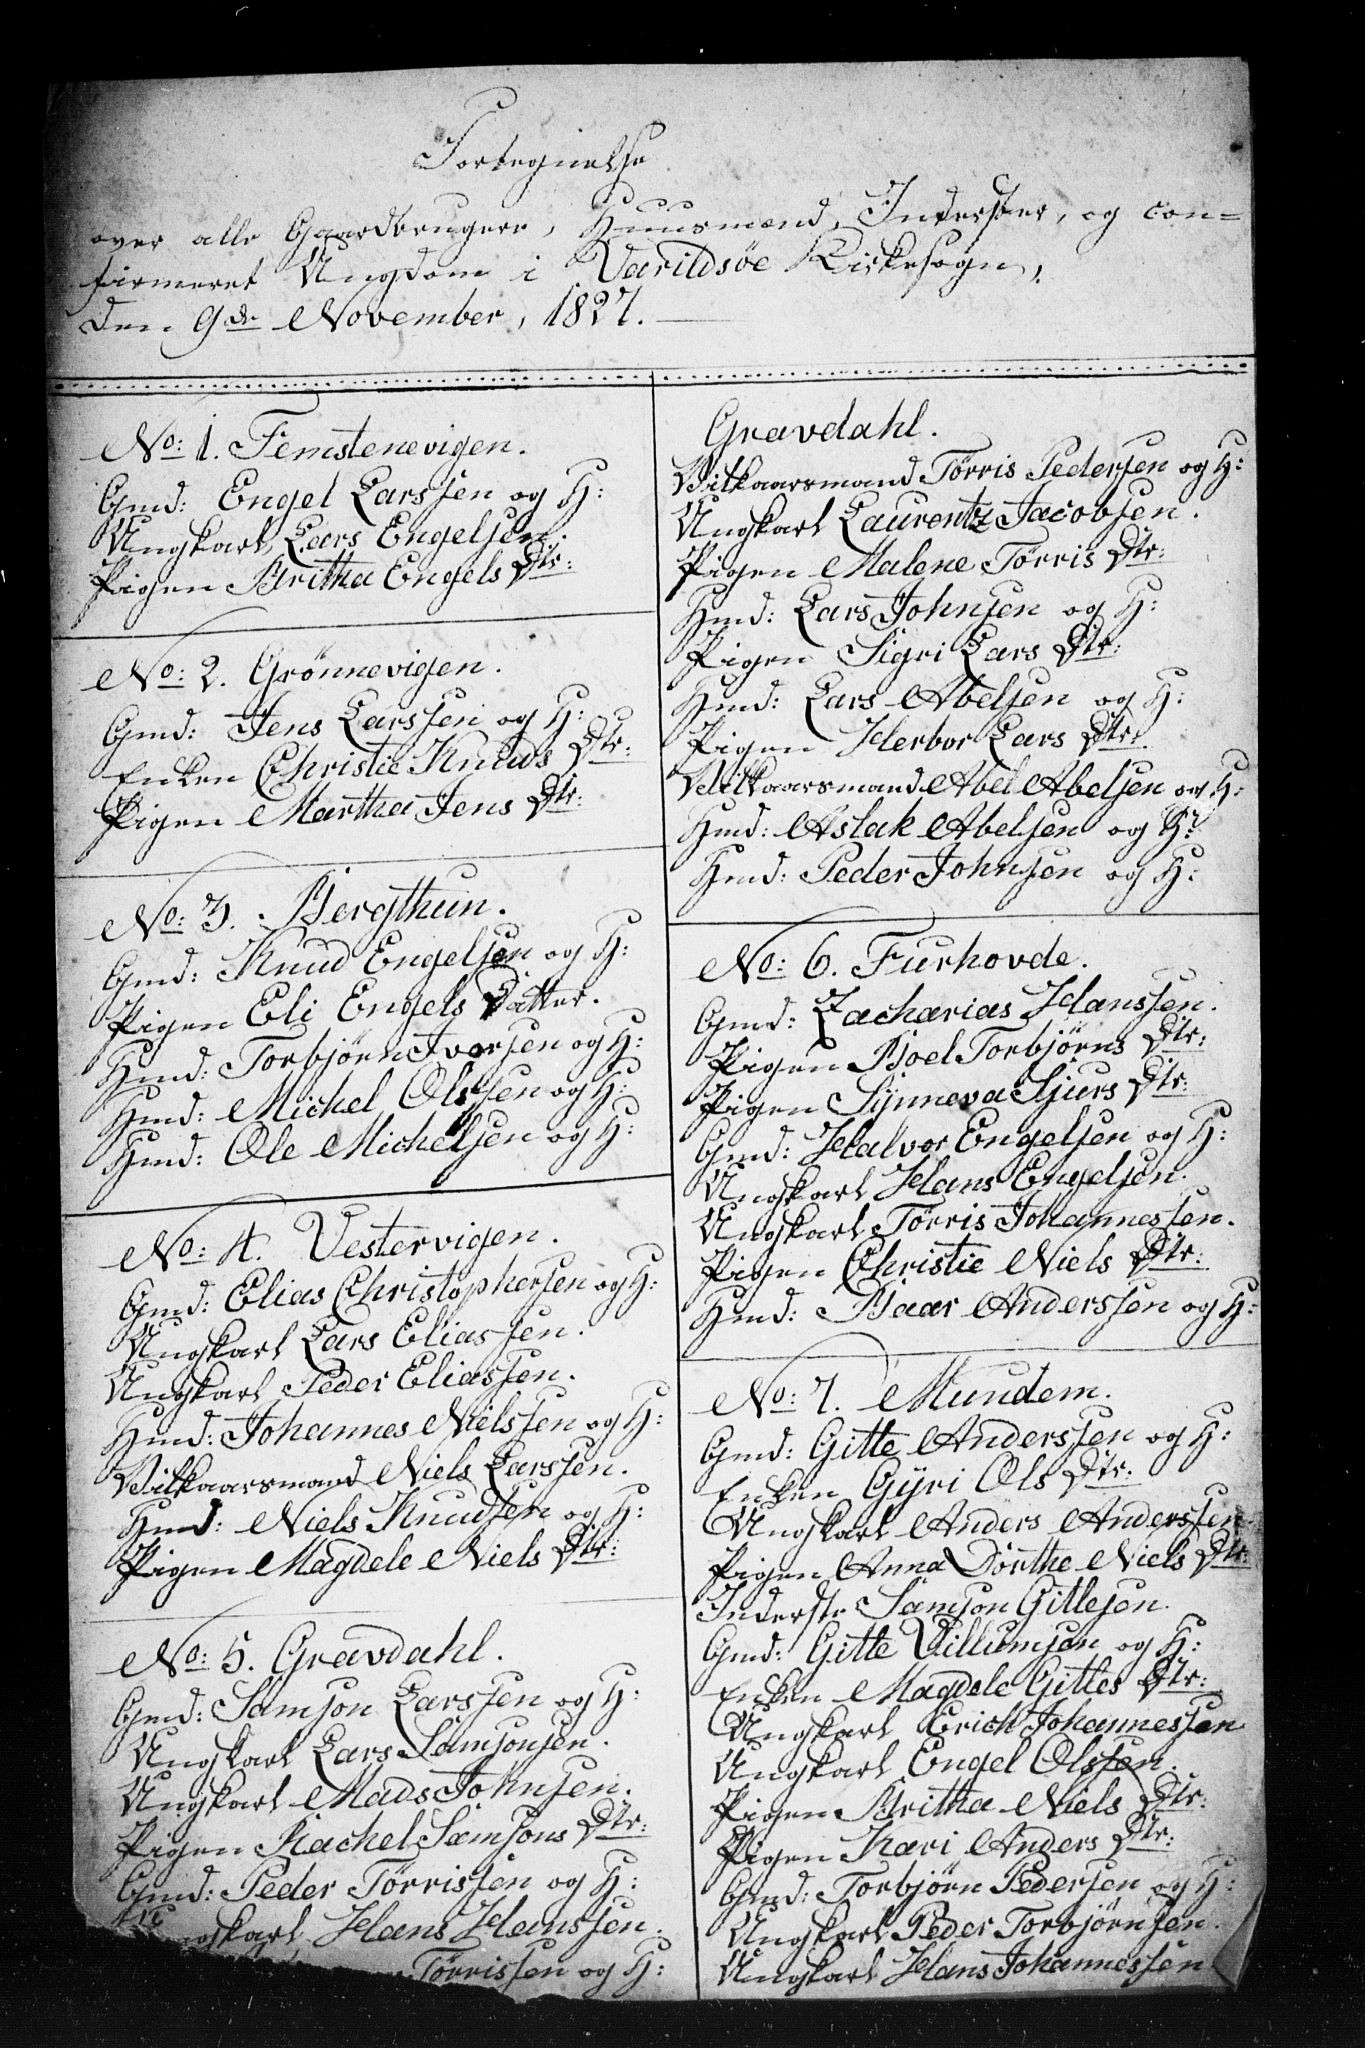 Fortegnelse
over alle Gaardbrugere, Huusmænd, Inderster, og con=
firmeret Ungdom i Varildsøe Kirkesogn,
den 9de November, 1827.
No: 1. Femstenevigen.
Gmd: Engel Larssen og H:
Ungkarl Lars Engelsen.
Pigen Britha Engels Dtr:
No: 2. Grønnevigen.
Gmd: Jens Larssen og H:
Enken Christie Knuds Dtr:
Pigen Martha Jens Dtr:
No: 3. Bergthun.
Gmd: Knud Engelsen og H:
Pigen Eli Engels Datter.
Hmd: Torbjørn Iversen og H:
Hmd: Michel Olssen og H:
Hmd: Ole Michelsen og H:
No: 4. Vestervigen.
Gmd: Elias Christophersen og H:
Ungkarl Lars Eliassen.
Ungkarl Peder Eliassen.
Hmd: Johannes Nielssen og H:
Vilkaarsmand Niels Larssen.
Hmd: Niels Knudsen og H:
Pigen Magdele Niels Dtr:
No: 5. Gravdahl.
Gmd: Samson Larssen og H:
Ungkarl Lars Samsonsen.
Ungkarl Mads Johnsen.
Pigen Rachel Samsons Dtr:
Gmd: Peder Tørrissen og H:
Ungkarl Hans Hanssen.
Tørrissen og H:
Gravdahl.
Vilkaarsmand Tørris Pedersen og H:
Ungkarl Laurentz Jacobsen.
Pigen Malene Tørris Dtr:
Hmd: Lars Johnsen og H:
Pigen Sigri Lars Dtr:
Hmd: Lars Abelsen og H:
Pigen Herbor Lars Dtr:
Vilkaarsmand Abel Abelsen og H:
Hmd: Aslak Abelsen og H:
Hmd: Peder Johnsen og H:
No: 6. Furhovde.
Gmd: Zacharias Hanssen.
Pigen Boel Torbjørns Dtr:
Pigen Synneva Sjurs Dtr:
Gmd: Halvor Engelsen og H:
Ungkarl Hans Engelsen.
Ungkarl Tørris Johannessen.
Pigen Christie Niels Dtr:
Hmd: Baar Anderssen og H:
No: 7. Mundem.
Gmd: Gitte Anderssen og H:
Enken Gyri Ols Dtr:
Ungkarl Anders Anderssen
Pigen Anna Dorthe Niels Dtr:
Inderste Samson Gittesen.
Gmd: Gitte Villumsen og H:
Enken Magdele Gittes Dtr:
Ungkarl Erich Johannessen
Ungkarl Engel Olssen.
Pigen Britha Niels Dtr:
Pigen Kari Anders Dtr:
Gmd: Torbjørn Pedersen og H:
Ungkarl Peder Torbjørnsen.
Ungkarl Hans Johannessen